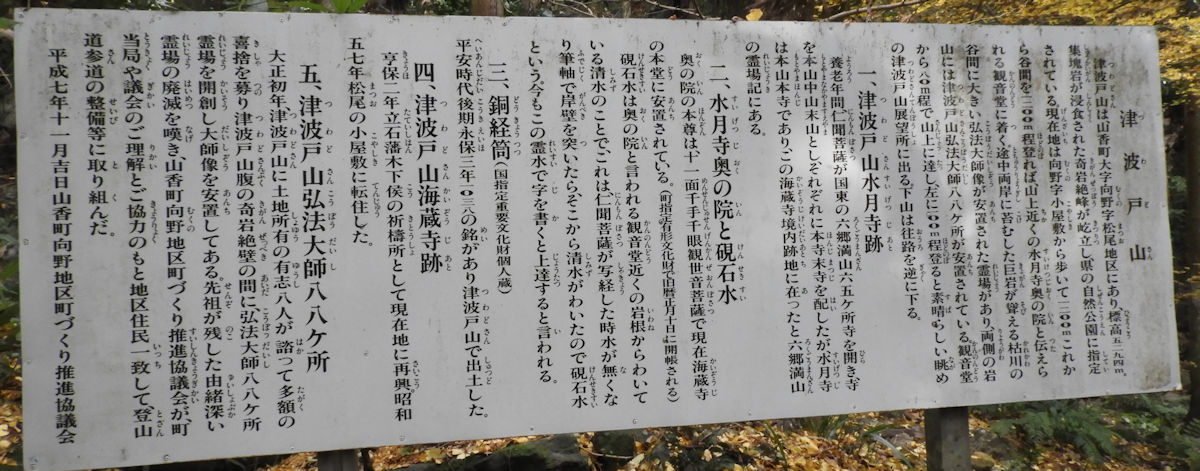 津波戸山
津波戸山は山香町大字向野字松尾地区にあり標高五二九.四m。
集塊岩が浸食された奇岩絶峰が屹立し県の自然公園に指定
されている現在地は向野字小屋敷から歩いて二〇〇mこれか
ら谷間を二〇〇m程登れば山上近くの水月寺奥の院と伝えら
れる観音堂に着く途中両岸に苔むした巨岩が聳える枯川の
谷間に大きい弘法大師像が安置された霊場があり両側の岩
山には津波戸山弘法大師八八ケ所が安置されている観音堂
から八〇m程で山上に達し左に一〇〇m程登ると素晴らしい眺め
の津波戸山展望所に出る下山は往路を逆に下る。
一、津波戸山水月寺跡
養老年間仁聞菩薩が国東の六郷満山六五ケ所寺を開き寺
を本山中山末山としそれぞれに本寺末寺を配したが水月寺
は本山本寺であり、この海蔵寺境内跡地に在ったと六郷満山
の霊場記にある。
二、水月寺奥の院と硯石水
奥の院の本尊は十一面千手千眼観世音菩薩で現在海蔵寺
の本堂に安置されている。(町指定有形文化財で旧暦正月十日に開帳される)
硯石水は奥の院と言われる観音堂近くの岩根からわいて
いる清水のことで、これは仁聞菩薩が写経した時水が無くな
り筆軸で岸壁を突いたら、そこから清水がわいたので硯石水
という。今もこの霊水で字を書くと上達すると言われる。
三、銅経筒(国指定重要文化財個人蔵)
平安時代後期永保三年一〇八三の銘があり津波戸山で出土した。
四、津波戸山海蔵寺跡
亨保二年立石藩木下侯の祈禱所として現在地に再興、昭和
五七年松尾の小屋敷に転住した。
五、津波戸山弘法大師八八ケ所
大正初年、津波戸山に土地所有の有志八人が諮って多額の
喜捨を募り津波戸山腹の奇岩絶壁の間に、弘法大師八八ケ所
霊場を開創し大師像を安置してある。先祖が残した由緒深い
霊場の廃滅を嘆き、山香町向野地区町づくり推進協議会が、町
当局や議会のご理解とご協力のもと地区住民一致して登山
道参道の整備等に取り組んだ。
平成七年十一月吉日山香町向野地区町づくり推進協議会